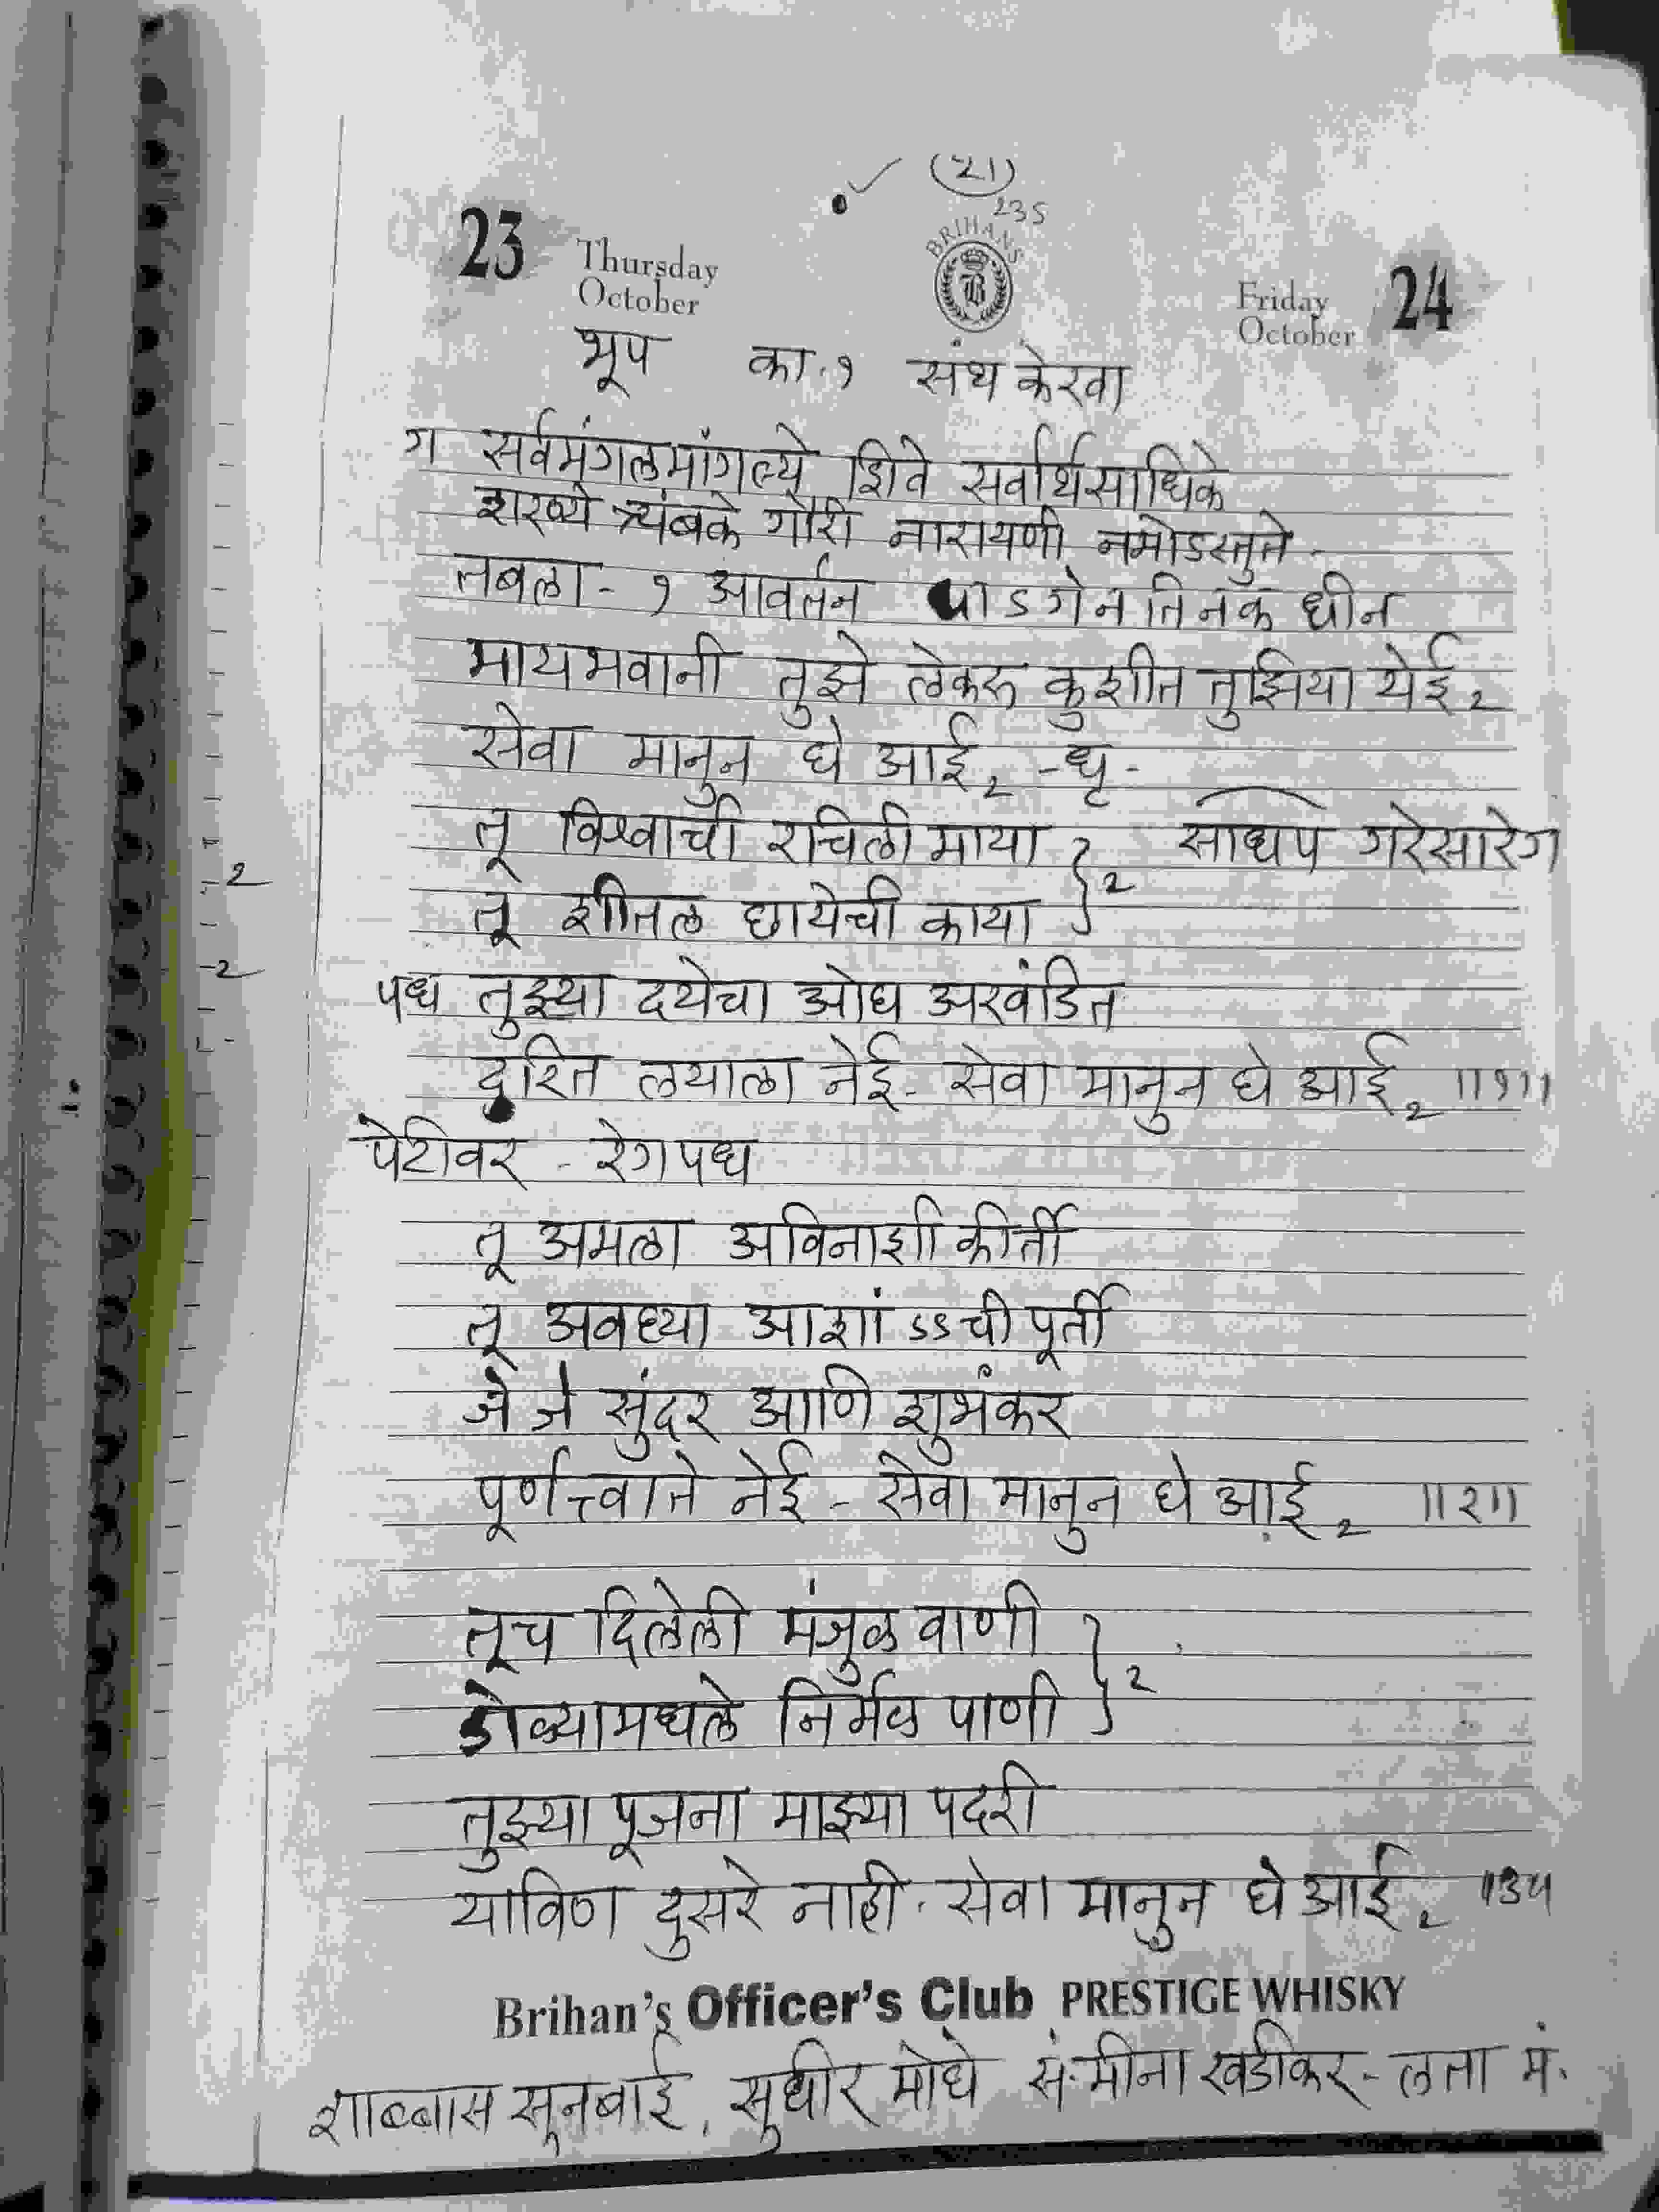 21
235
23 Thursday October
BRIHANS
B
Friday October 24
भूप का. १ संथ केरवा
ग सर्वमंगलमांगल्ये शिवे सर्वार्थसाधिके
शरण्ये त्र्यंबके गौरी नारायणी नमोऽस्तुते
तबला - १ आवर्तन धा ऽ गे न ति न क धीन
मायभवानी तुझे लेकरु कुशीत तुझिया येई २
सेवा मानुन घे आई २ - धृ -
तू विश्वाची रचिली माया } २ साधप गरेसारेग
तू शीतल छायेची काया
पध तुझ्या दयेचा ओघ अखंडित
दुरित लयाला नेई - सेवा मानुन घे आई २ ॥१॥
पेटीवर - रेगपध
तू अमला अविनाशी कीर्ती
तू अवघ्या आशां ऽऽ ची पूर्ती
जे जे सुंदर आणि शुभंकर
पूर्णत्त्वाते नेई - सेवा मानुन घे आई २ ॥२॥
तूच दिलेली मंजुळ वाणी } २
डोळ्यामधले निर्मळ पाणी
तुझ्या पूजना माझ्या पदरी
याविण दुसरे नाही. सेवा मानुन घे आई २ ॥३॥
Brihan's Officer's Club PRESTIGE WHISKY
शाब्बास सूनबाई, सुधीर मोघे सं. मीना खडीकर - लता मं.